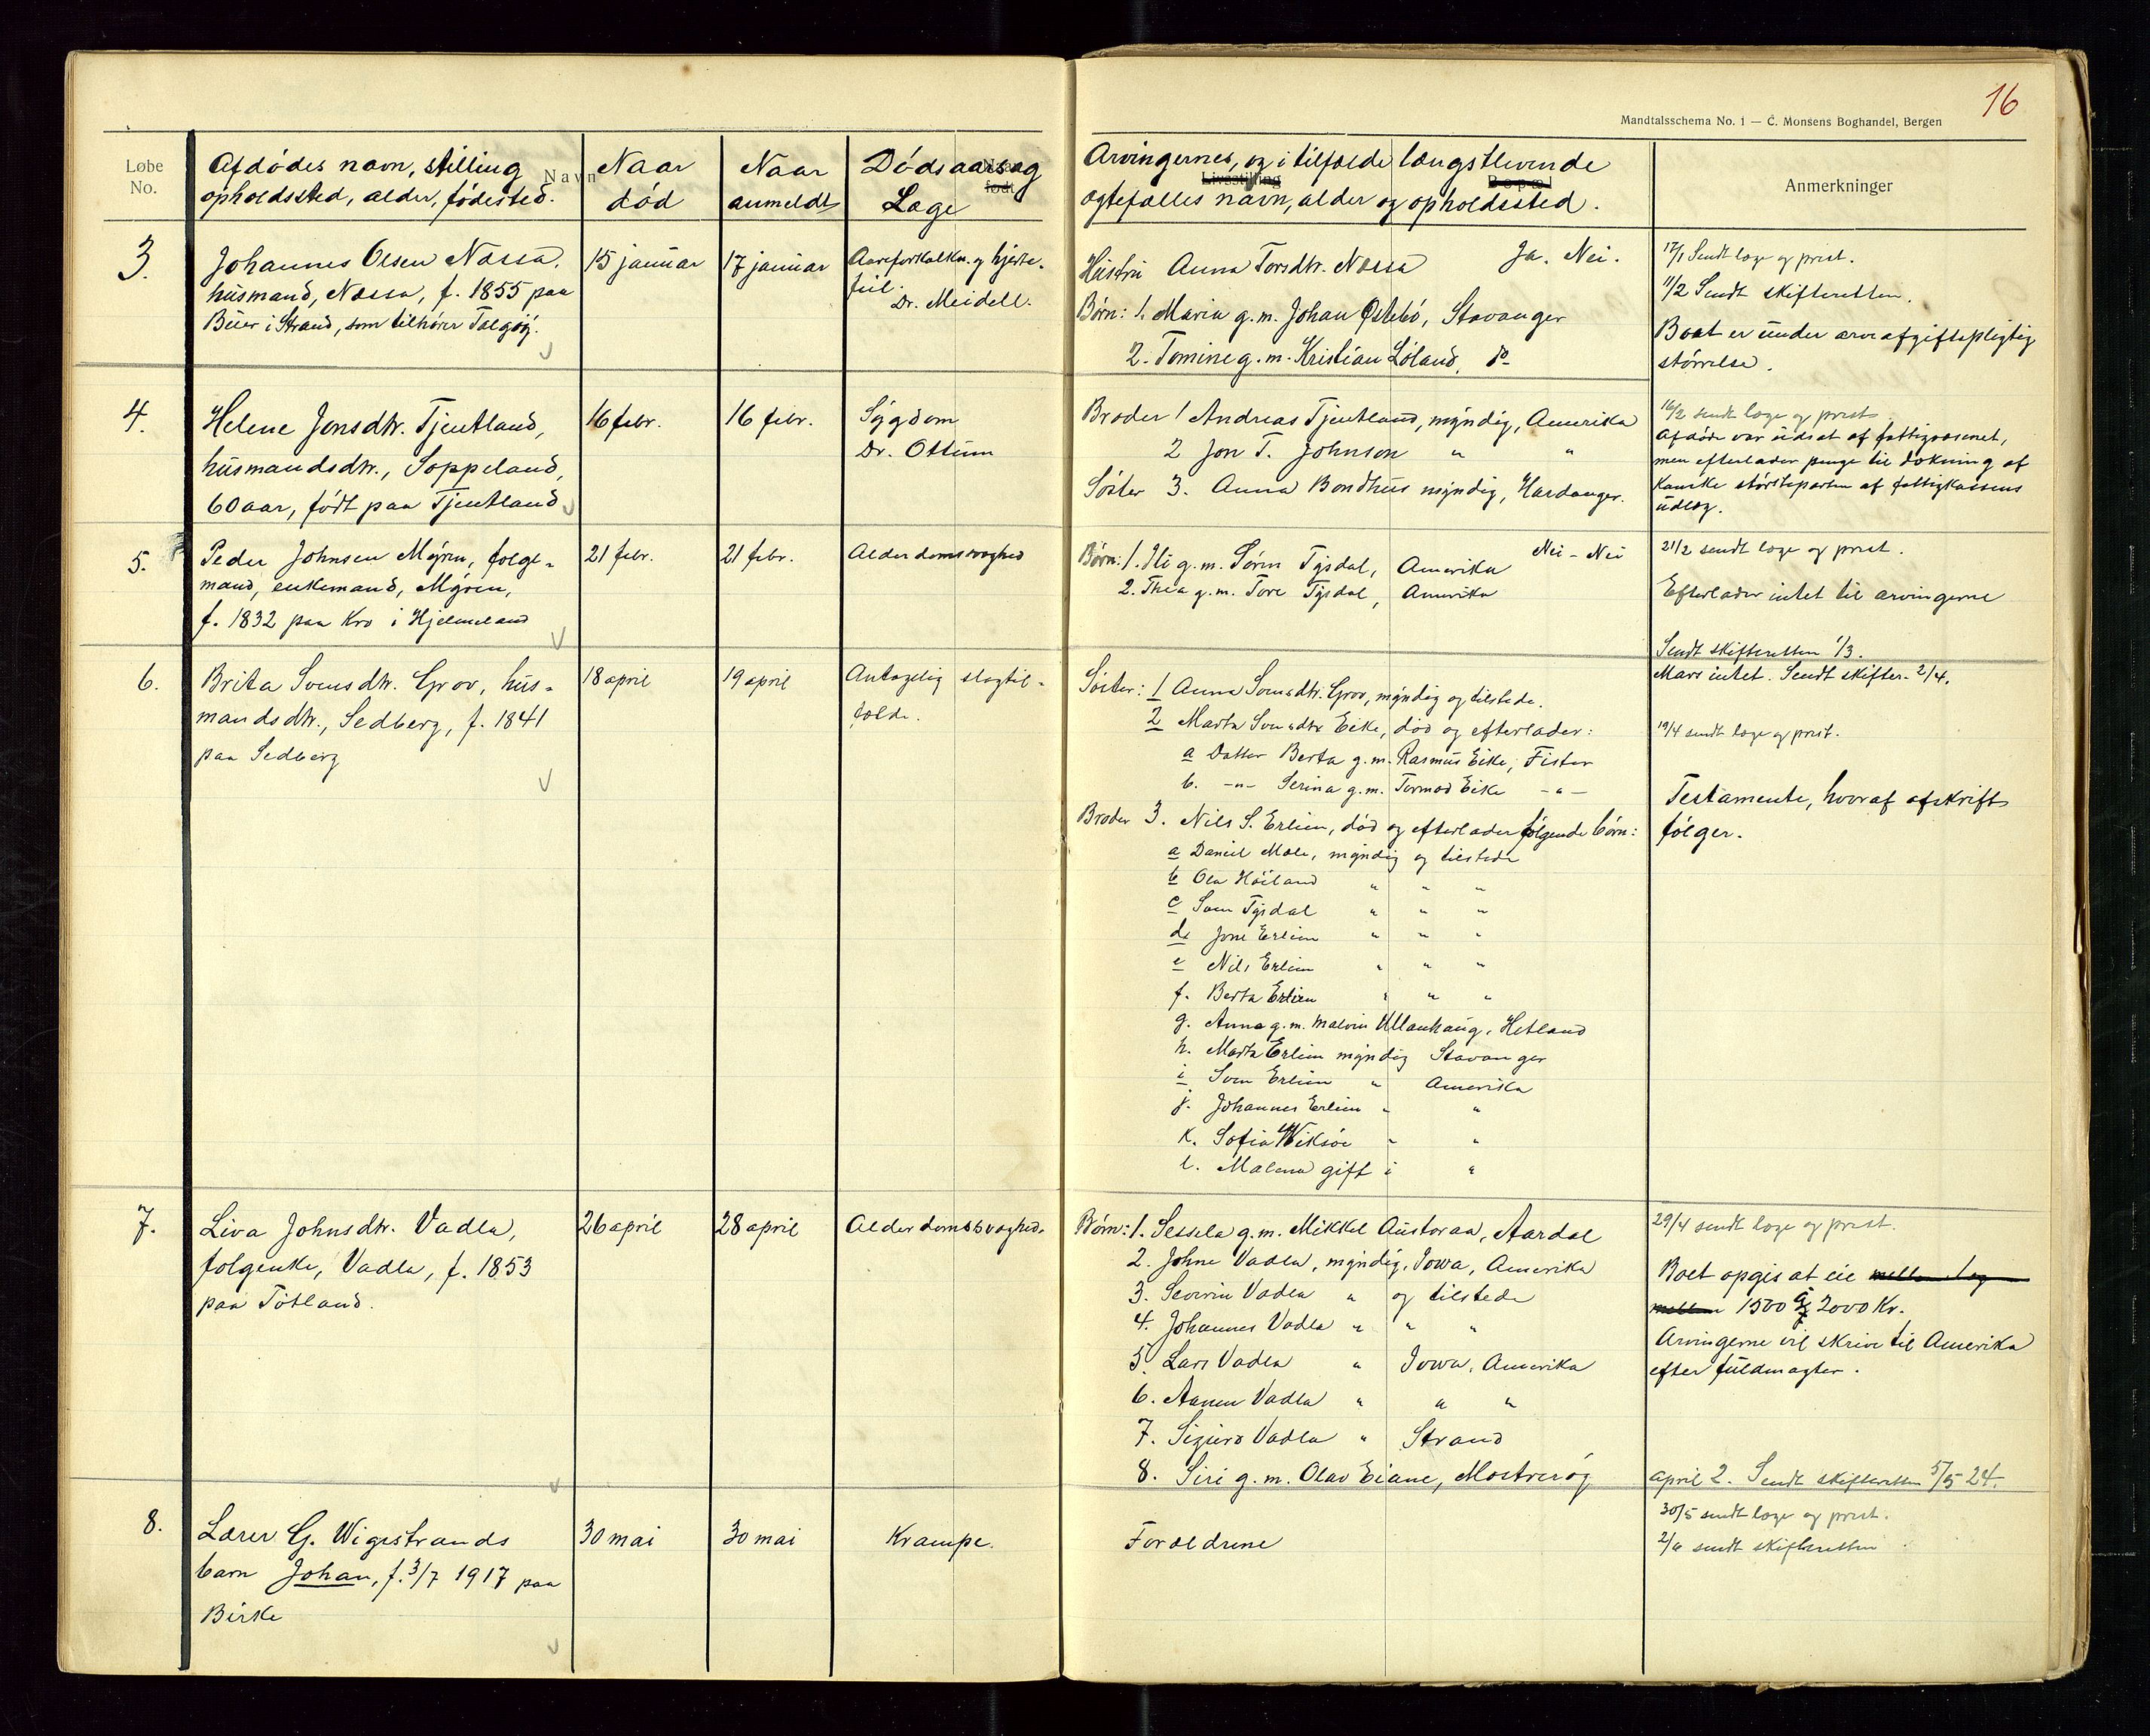 16
Mandtalsschema No. 1 — C. Monsens Boghandel, Bergen
Løbe No.
Afdødes navn, stilling
Navn
opholdssted, alder, fødested.
Naar død
Naar anmeldt
Dødsaarsag
født
Læge
Arvingernes, og i tilfælde længstlevende
Livsstilling
Bopæl
ægtefælles navn, alder og opholdssted.
Anmerkninger
3.
Johannes Olsen Næssa,
husmand, Næssa, f. 1855 paa
Buer i Strand, som tilhører Talgøy.
15 januar
17 januar
Aareforkalkn. og hjerte-
feil.
Dr. Meidell.
Hustru Anna Torsdtr. Næssa Ja. Nei.
Børn: 1. Maria g.m. Johan Østebø, Stavanger
2. Tomine g.m. Kristian Løland, do
17/1 Sendt læge og prest.
11/2 Sendt skifteretten.
Boet er under arveafgiftspligtig
størrelse.
4.
Helene Jonsdtr. Tjentland,
husmandsdtr., Soppeland,
60 aar, født paa Tjentland
16 febr.
16 febr.
Sygdom
Dr. Ottum
Broder 1 Andreas Tjentland, myndig, Amerika
2 Jon T. Johnson " "
Søster 3. Anna Bondhus myndig, Hardanger.
16/2 sendt læge og prest.
Afdøde var udsat af fattigvæsenet,
men efterlader penge til dækning af
kanske størsteparten af fattigkassens
udlæg.
5.
Peder Johnsen Myren, folge-
mand, enkemand, Myren,
f. 1832 paa Kro i Hjelmeland
21 febr.
21 febr.
Alderdomssvaghed
Børn: 1. Ili g.m. Søren Tysdal, Amerika Nei - Nei
2. Thea g.m. Tore Tysdal, Amerika
21/2 sendt læge og prest.
Efterlader intet til arvingerne
Sendt skifteretten 1/3.
Mars intet. Sendt skifter. 2/4.
6.
Brita Svensdtr. Grov, hus-
mandsdtr., Sedberg, f. 1841
paa Sedberg
18 april
19 april
Antagelig slagtil-
fælde.
Søster: 1 Anna Svensdtr. Grov, myndig og tilstede.
2 Marta Svensdtr Eike, død og efterlader:
a Datter Berta g.m. Rasmus Eike, Fister
b. -"- Serina g.m. Tormod Eike -"-
Broder 3. Nils S. Erlien, død og efterlader følgende børn:
a Daniel Mæle, myndig og tilstede
b Ola Høiland " " "
c Sven Tysdal " " "
d. Jone Erlien " " "
e Nils Erlien " " "
f. Berta Erlien " " "
g. Anna g.m. Malvin Ullenhaug, Hetland
h. Marta Erlien myndig Stavanger
i Sven Erlien " Amerika
j. Johannes Erlien " "
k. Sofia Wiksøe " "
l. Malena gift i "
19/4 sendt læge og prest.
Testamente, hvoraf afskrift
følger.
7.
Liva Johnsdtr. Vadla,
folgenke, Vadla, f. 1853
paa Tøtland.
26 april
28 april
Alderdomssvaghed.
Børn: 1. Sessela g.m. Mikkel Austoraa, Aardal
2. Johne Vadla, myndig, Iowa, Amerika
3. Severin Vadla " og tilstede
4. Johannes Vadla " " "
5. Lars Vadla " Iowa, Amerika
6. Aanen Vadla " " "
7. Sigurd Vadla " Strand
8. Siri g.m. Olav Eiane, Mosterøy
29/4 sendt læge og prest.
Boet opgis at eie
1500 2000 Kr.
Arvingerne vil skrive til Amerika
efter fuldmagter.
april 2. Sendt skifteretten 5/5 24.
8.
Lærer G. Wigestrands
barn Johan, f. 3/7 1917 paa
Birke
30 mai
30 mai
Krampe.
Forældrene
30/5 sendt læge og prest.
2/6 sendt skifteretten